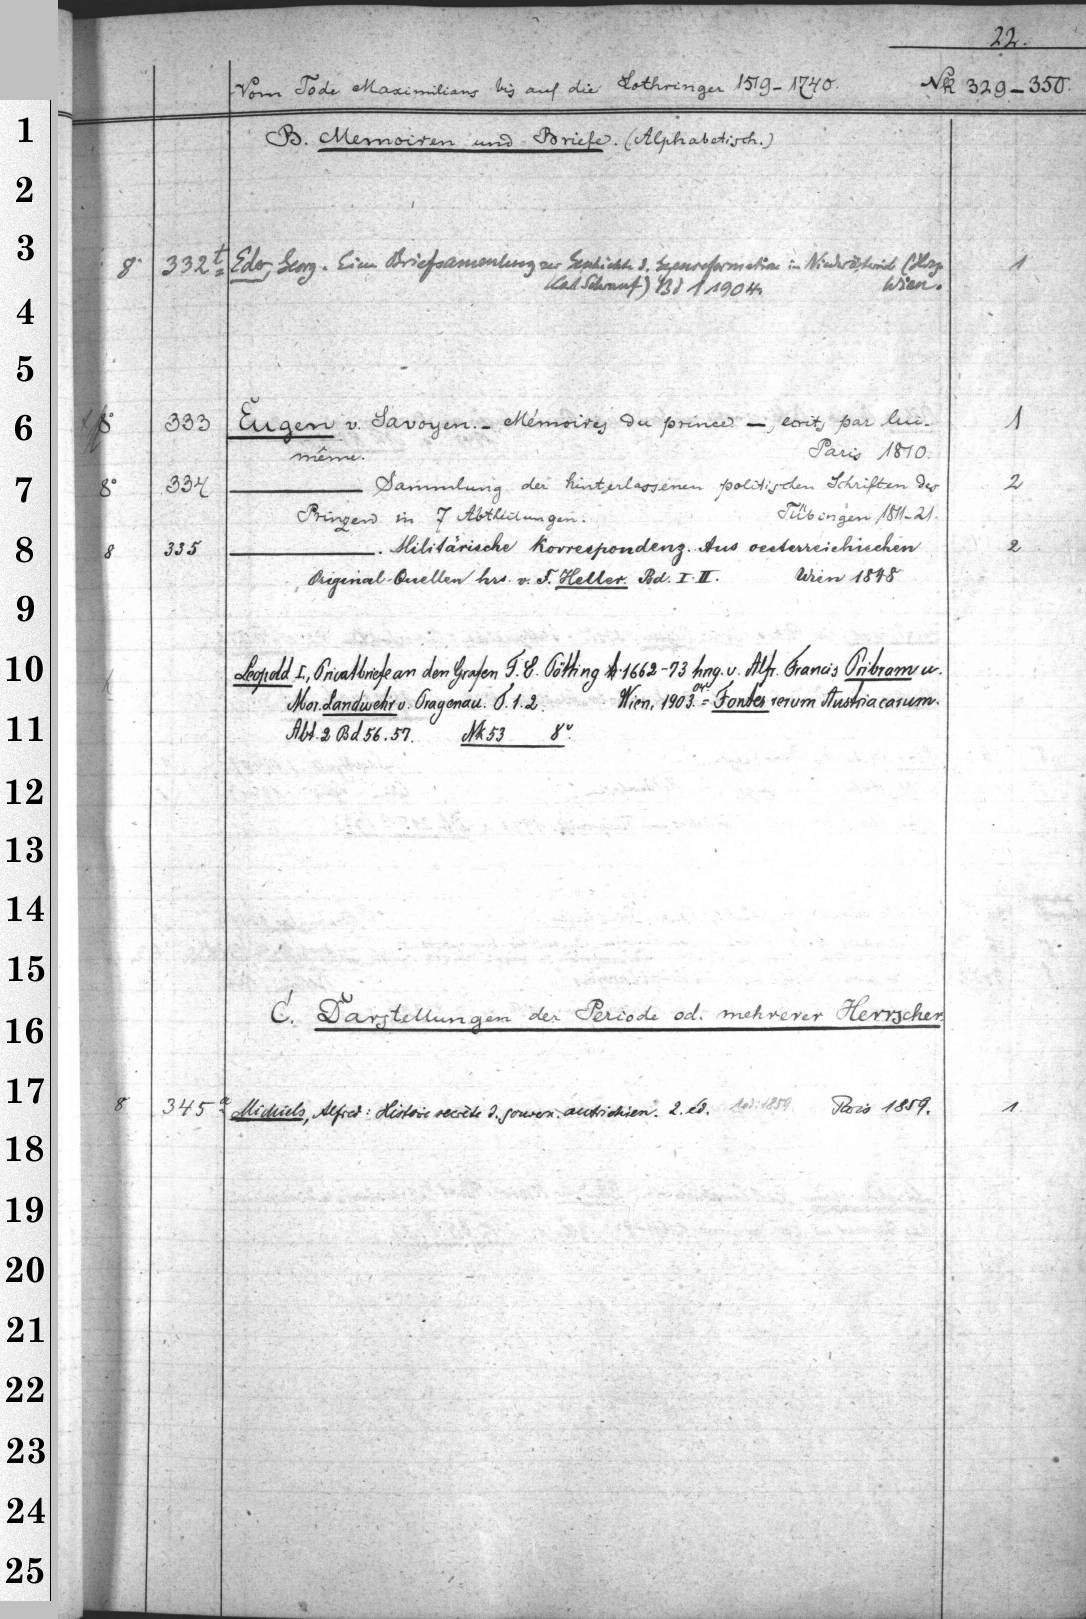 22.
Vom Tode Maximilians bis auf die Lothringer 1519–1740. Nk 329–350.
1
B. Memoiren und Briefe. (Alphabetisch.)
2
3
8° 332t Eder, Georg. Eine Briefsammlung zur Geschichte d. Gegenreformation in Niederösterreich (Hrsg. 1
Karl Schrauf) Bd 1 1904. Wien.
4
5
6
8° 333 Eugen v. Savoyen. – Mémoires du prince —, ecrits par lui- 1
même. Paris 1810.
7
8° 334 ——— Sammlung der hinterlassenen politischen Schriften des 2
Prinzen in 7 Abtheilungen. Tübingen 1811–21.
8
8 335 ———. Militärische Korrespondenz. Aus oesterreichischen 2
Original-Quellen hrs. v. F. Heller. Bd. I. II. Wien 1848
9
10
Leopold I, Privatbriefe an den Grafen F. E. Pötting 1662–73 hrsg. v. Alfr. Francis Pribram u.
Mor. Landwehr v. Pragenau. T. 1. 2. Wien, 1903.04 = Fontes rerum Austriacarum.
11
Abt. 2 Bd 56. 57. Nk 53 8°.
12
13
14
15
16
C. Darstellungen der Periode od. mehrerer Herrscher.
17
8 345a Michiels, Alfred: Histoire secrète d. gouven. autrichien. 2. éd. 1859 Paris 1859. 1
18
19
20
21
22
23
24
25